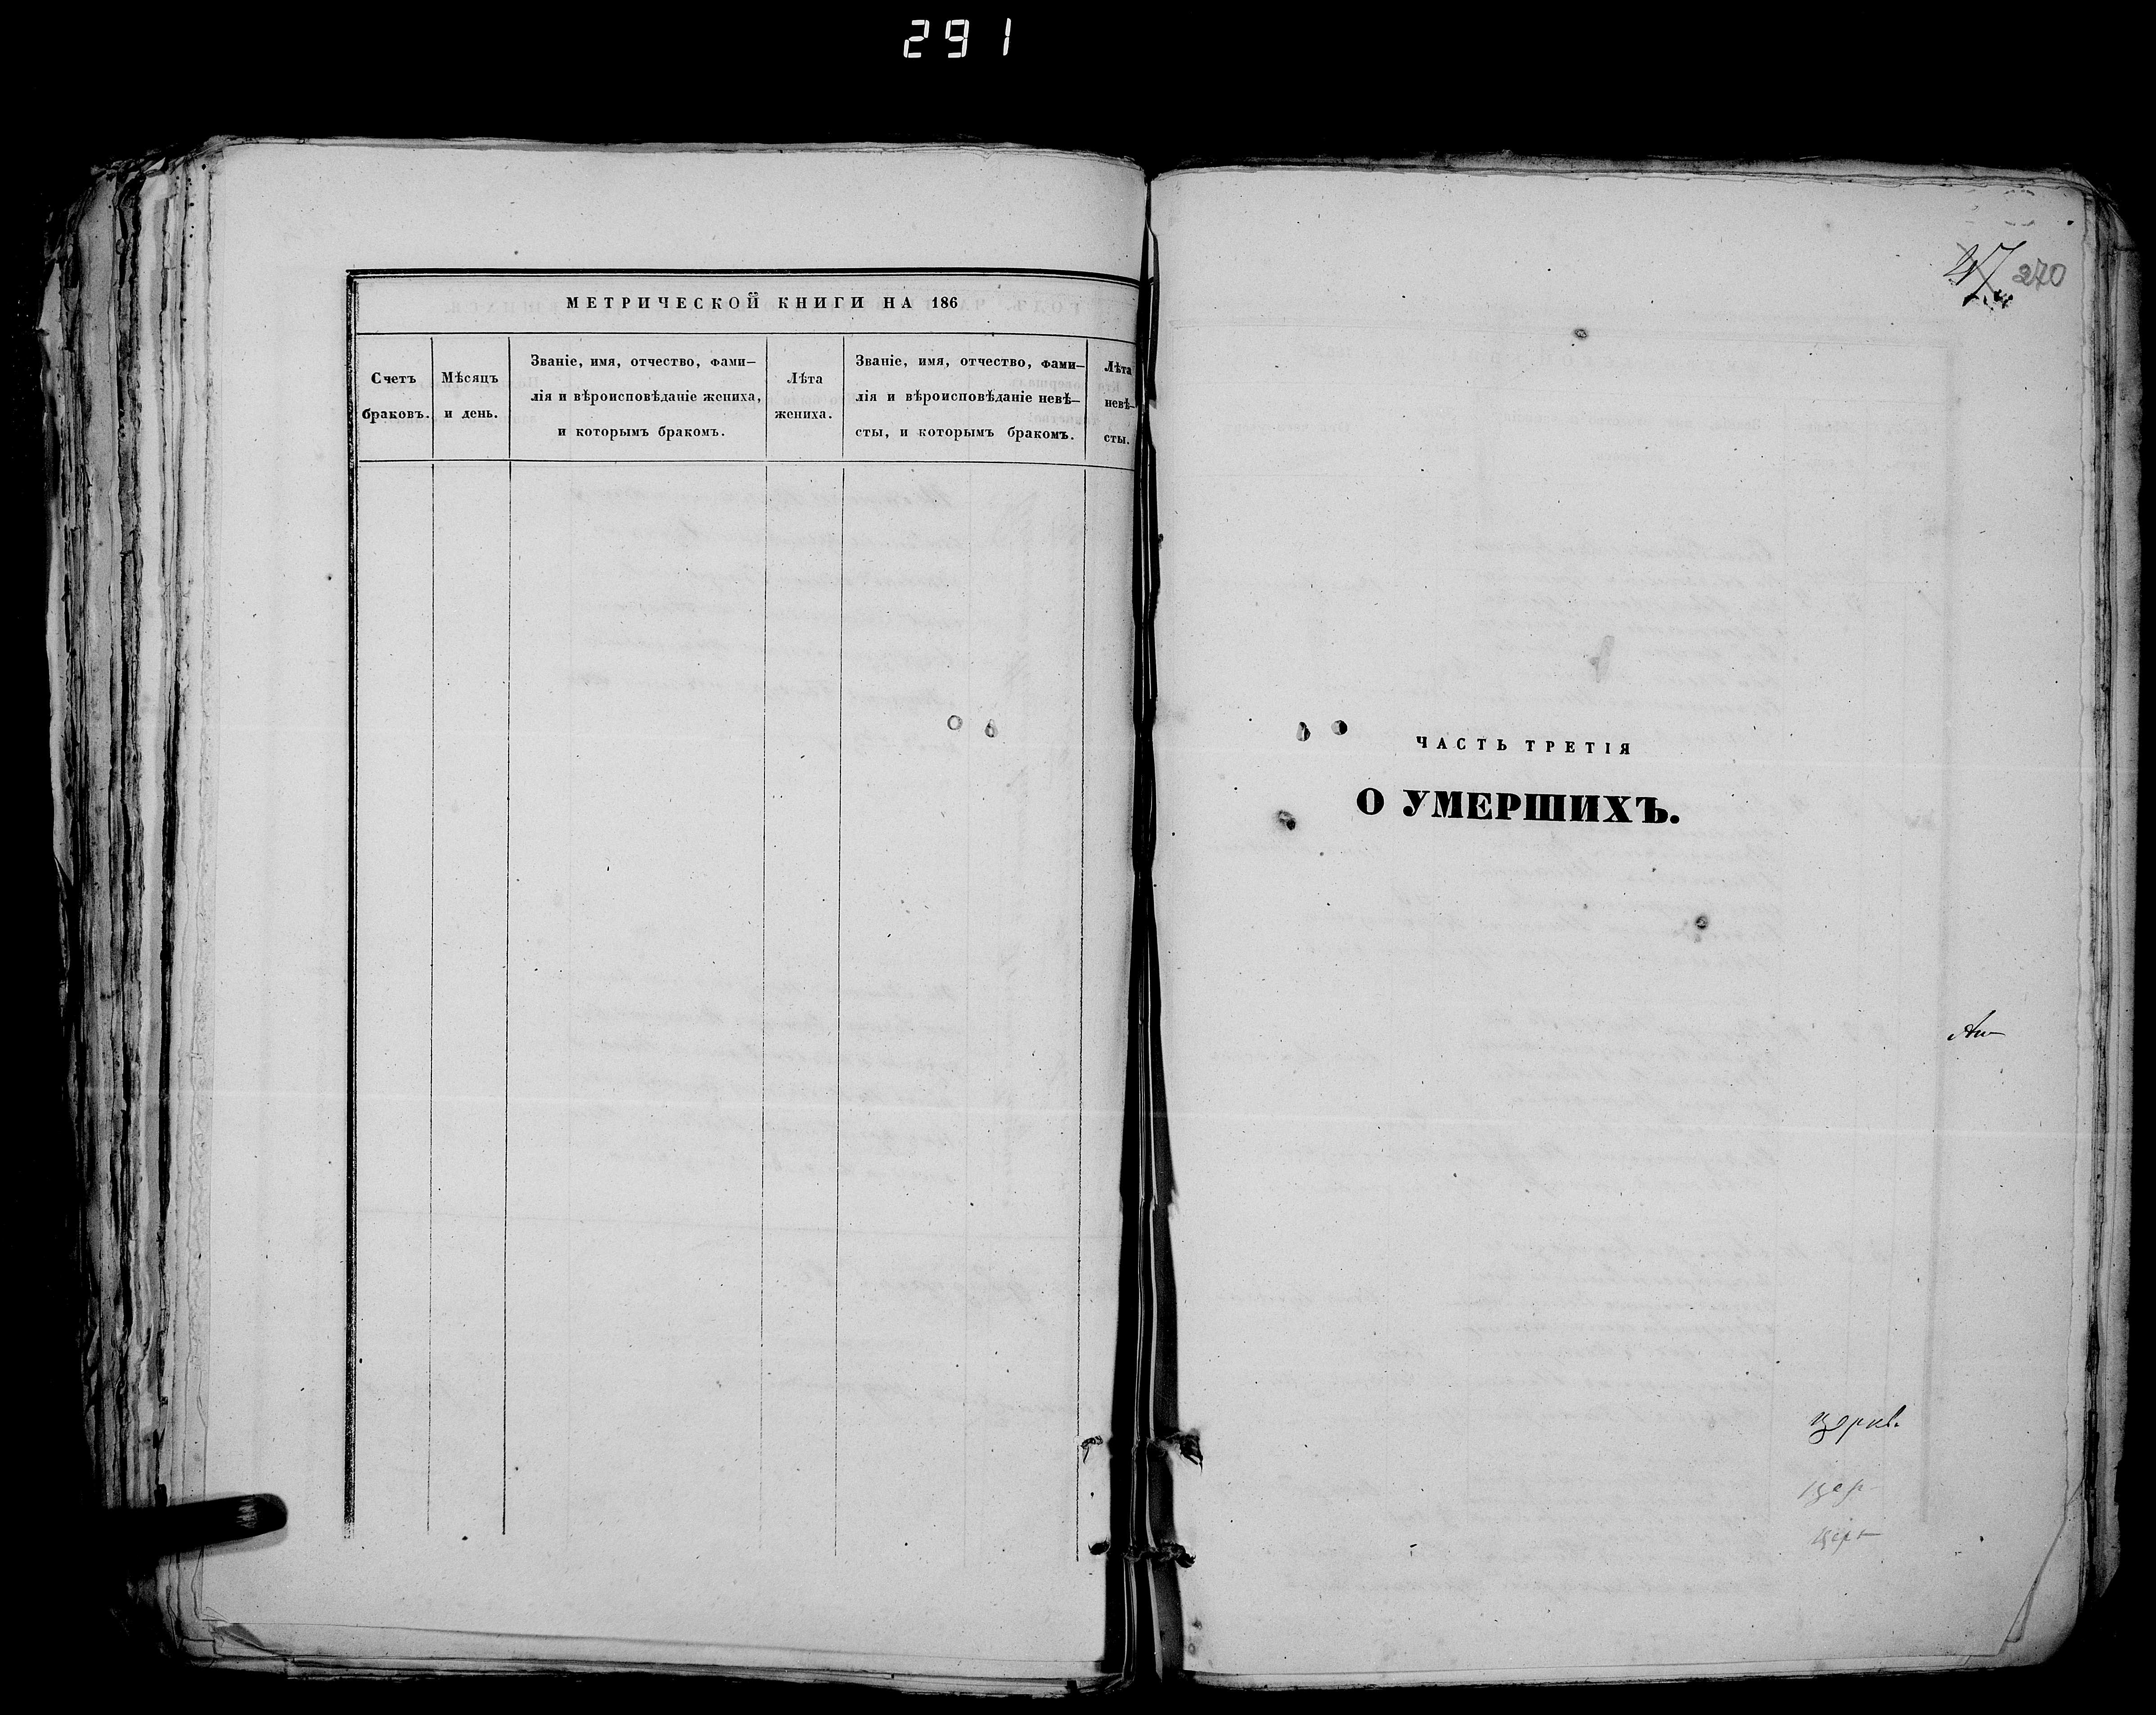 291
МЕТРИЧЕСКОЙ КНИГИ НА 186
Счетъ
браковъ.
Мѣсяцъ
и день.
Званіе, имя, отчество, фами–
лія и вѣроисповѣданіе жениха,
и которымъ бракомъ.
Лѣта
жениха.
Званіе, имя, отчество, фами–
лія и вѣроисповѣданіе невѣ–
сты, и которымъ бракомъ.
Лѣта
невѣ–
сты.
270
ЧАСТЬ ТРЕТІЯ
О УМЕРШИХЪ.
церкв.
цер
церк